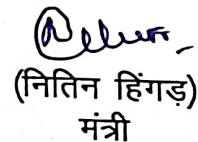 (नितिन हिंगड़)
मंत्री